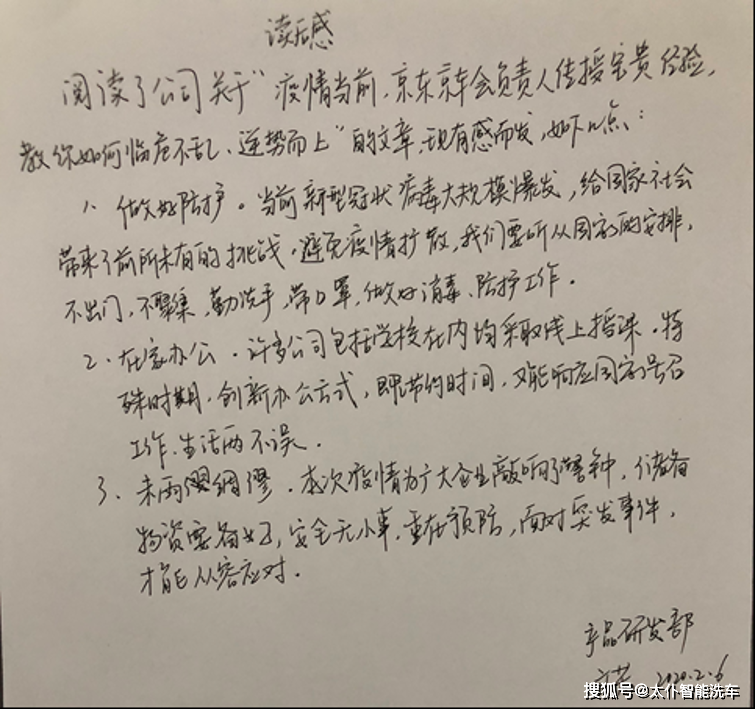 读后感
阅读了公司关于"疫情当前,京东京车会负责人传授宝贵经验,
教你如何临危不乱、逆势而上"的文章,现有感而发,如下几点:
1、做好防护。当前新型冠状病毒大规模爆发,给国家社会
带来了前所未有的挑战。避免疫情扩散,我们要听从国家的安排,
不出门,不聚集,勤洗手,带口罩,做好消毒、防护工作。
2、在家办公。许多公司包括学校在内均采取线上授课。特
殊时期,创新办公方式,既节约时间,又能响应国家号召
工作、生活两不误。
3、未雨绸缪。本次疫情为广大企业敲响了警钟,储备
物资要备好,安全无小事,重在预防,面对突发事件,
才能从容应对。
产品研发部
2020.2.6
搜狐号@太仆智能洗车